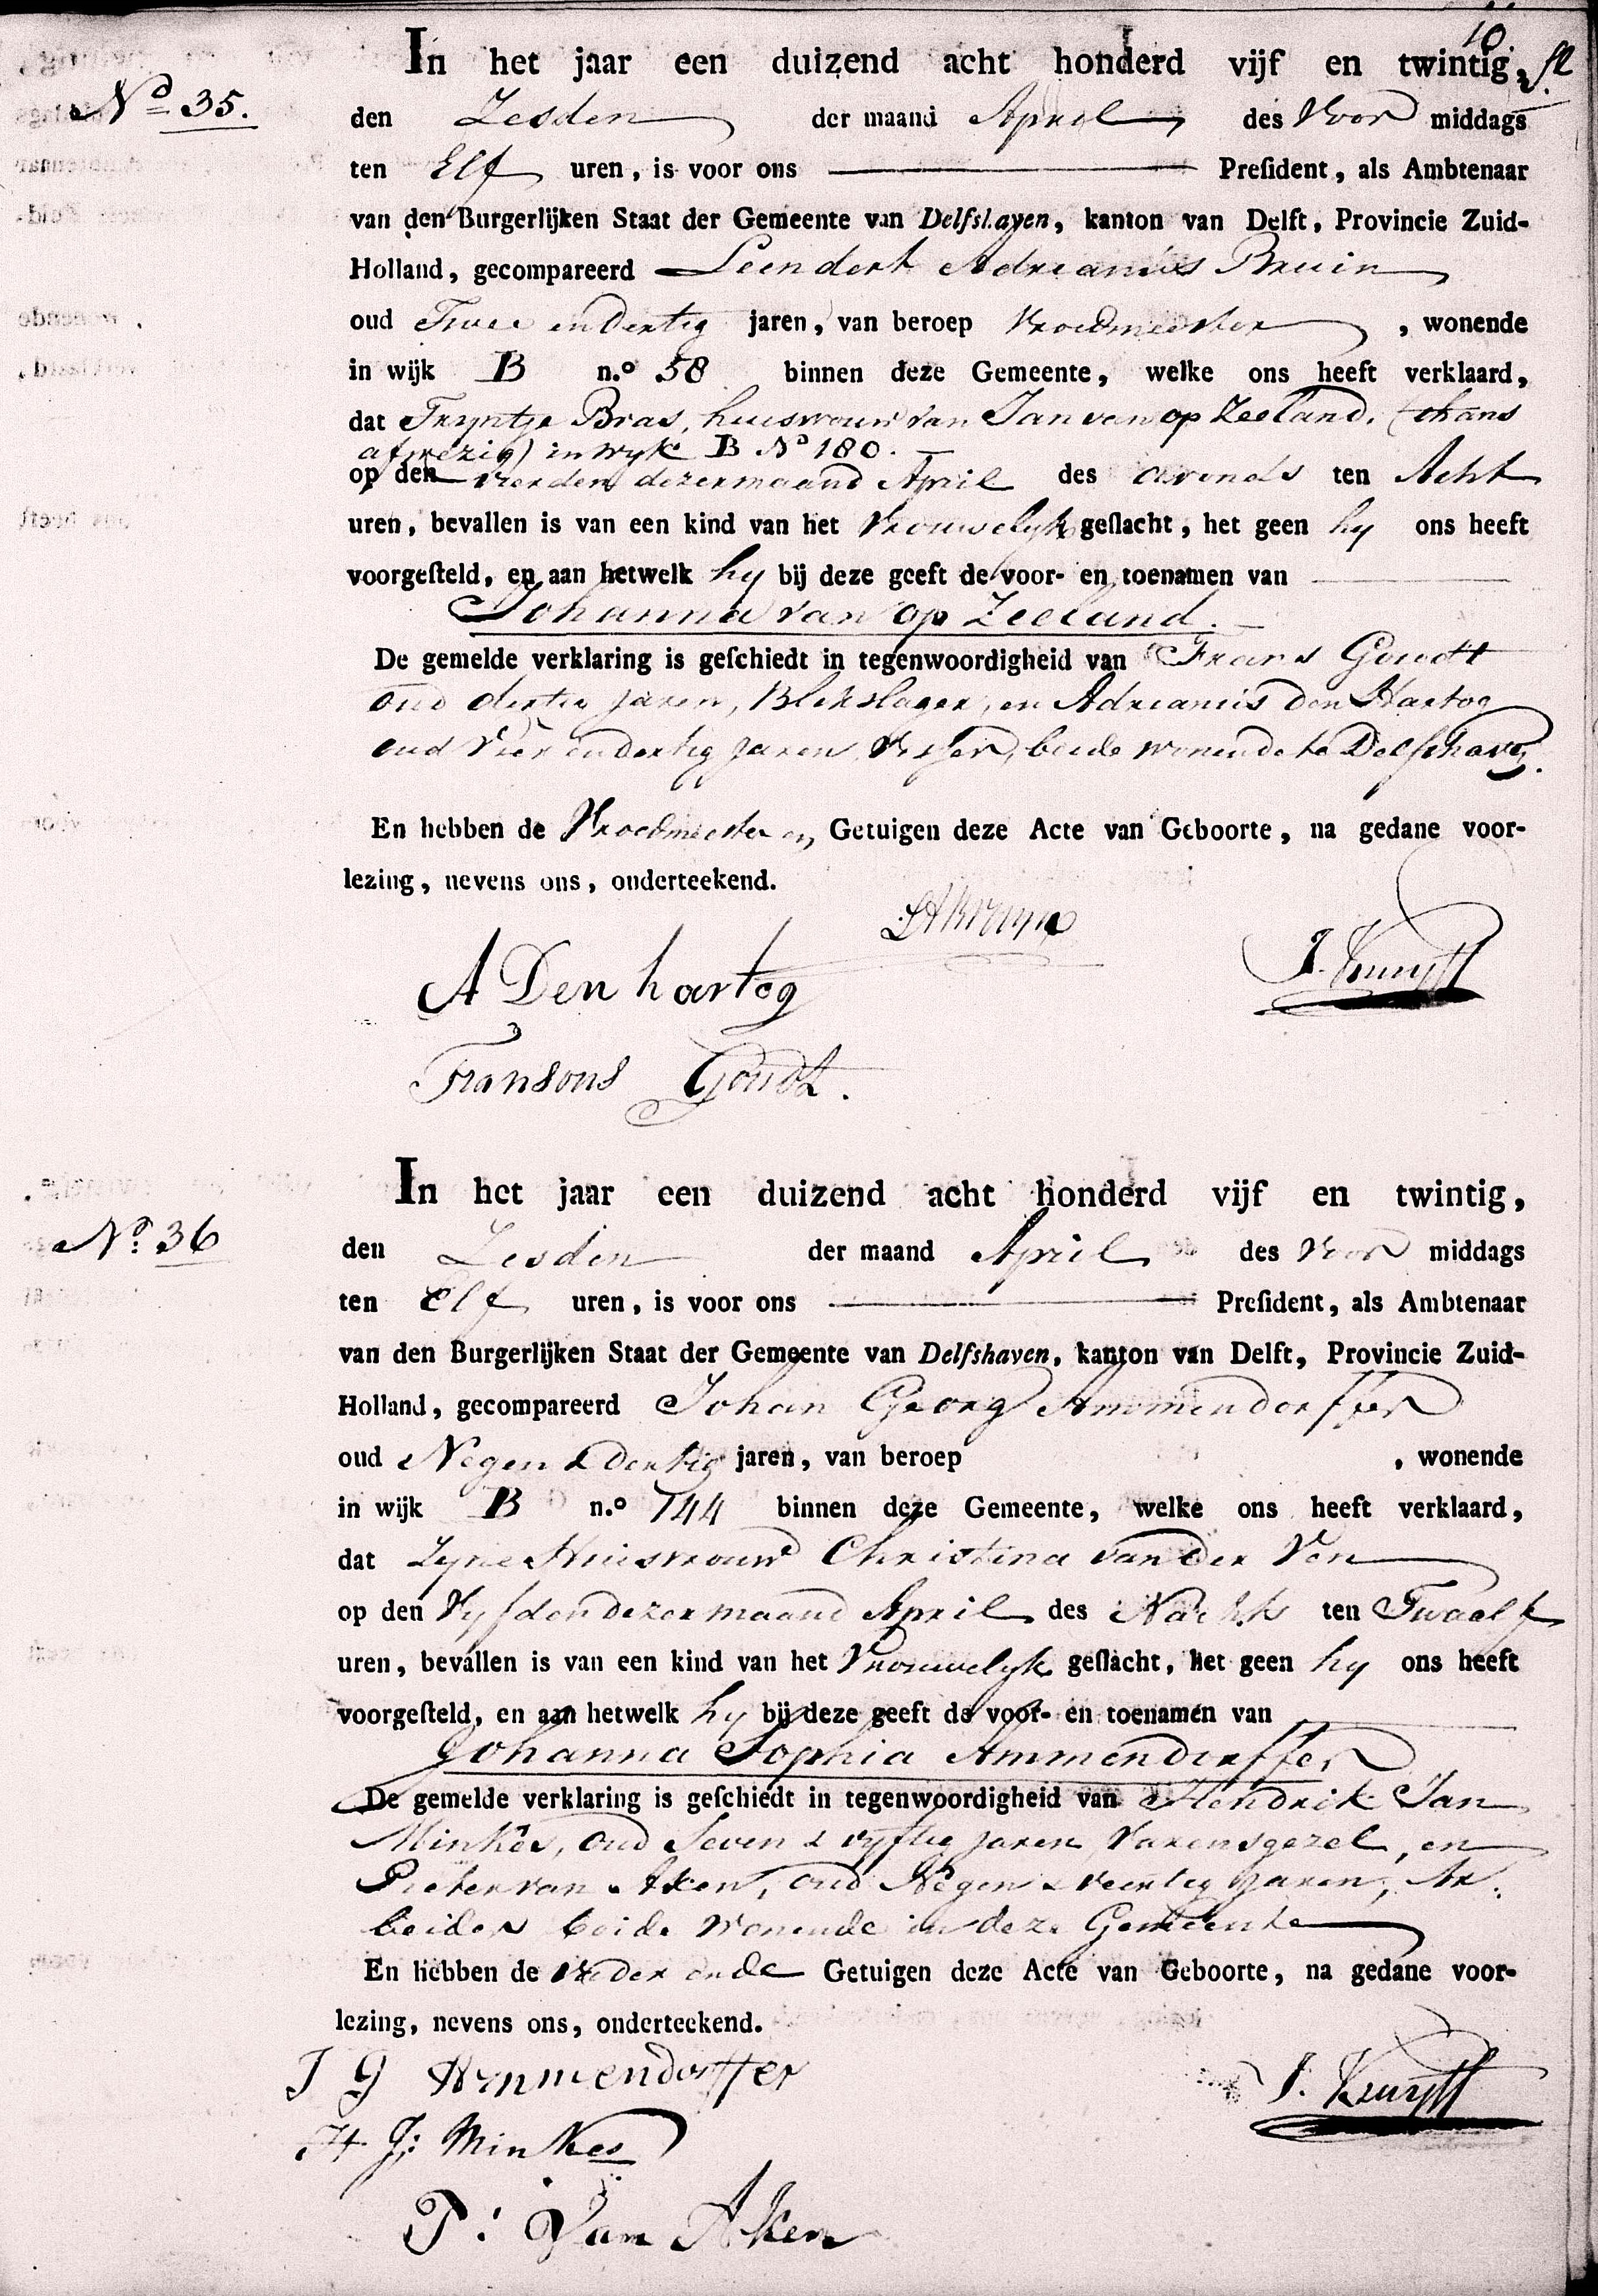 10
In het jaar een duizend acht honderd vijf en twintig,
Nº 35.
den Zesden der maand April des Voor middags
ten Elf uren, is voor ons President, als Ambtenaar
van den Burgerlijken Staat der Gemeente van Delfshaven, kanton van Delft, Provincie Zuid-
Holland, gecompareerd Leendert Adrianus Bruin
oud Twee en Dertig jaren, van beroep Vroedmeester, wonende
in wijk B n.º 58 binnen deze Gemeente, welke ons heeft verklaard,
dat Tryntje Bras, huisvrouw van Jan van op Zeeland, (thans
afwezig) in wyk B Nº 180.
op den vierden dezer maand April des avonds ten Acht
uren, bevallen is van een kind van het Vrouwelyk geslacht, het geen hy ons heeft
voorgesteld, en aan hetwelk hy bij deze geeft de voor- en toenamen van
Johanna van op Zeeland.
De gemelde verklaring is geschiedt in tegenwoordigheid van Frans Goudt
oud dertig jaren, Blikslager, en Adrianus Den Hartog
oud Vier en dertig jaren, Visser, beide wonende te Delfshaven.
En hebben de Vroedmeester en Getuigen deze Acte van Geboorte, na gedane voor-
lezing, nevens ons, onderteekend.
LABruyn
A Den hartog
J. Kruyff
Fransons Goudt.
In het jaar een duizend acht honderd vijf en twintig,
Nº. 36
den Zesden der maand April des Voor middags
ten Elf uren, is voor ons President, als Ambtenaar
van den Burgerlijken Staat der Gemeente van Delfshaven, kanton van Delft, Provincie Zuid-
Holland, gecompareerd Johan Georg Ammendorffer
oud Negen & Dertig jaren, van beroep , wonende
in wijk B n.º 144 binnen deze Gemeente, welke ons heeft verklaard,
dat Zyne Huisvrouw Christina van der Ven
op den Vyfden dezer maand April des Nachts ten Twaalf
uren, bevallen is van een kind van het Vrouwelyk geslacht, het geen hy ons heeft
voorgesteld, en aan hetwelk hy bij deze geeft de voor- en toenamen van
Johanna Sophia Ammendorffer
De gemelde verklaring is geschiedt in tegenwoordigheid van Hendrik Jan
Minkes, oud Seven & vyftig jaren, Varensgezel, en
Pieter van Aken, oud Negen & veertig jaren, Ar-
beider beide wonende in deze Gemeente
En hebben de Vader en de Getuigen deze Acte van Geboorte, na gedane voor-
lezing, nevens ons, onderteekend.
J G Ammendorffer
J. Kruyff
H J: Minkes
P: Van Aken